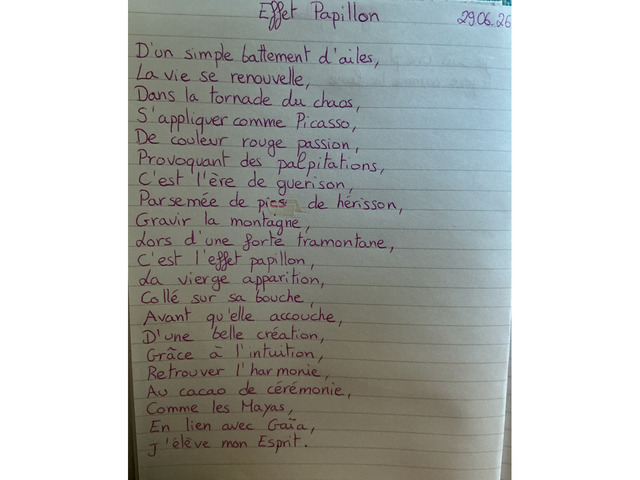 Effet Papillon
29.06.26
D'un simple battement d'ailes,
La vie se renouvelle,
Dans la tornade du chaos,
S'appliquer comme Picasso,
De couleur rouge passion,
Provoquant des palpitations,
C'est l'ère de guerison,
Parsemée de pics de hérisson,
Gravir la montagne,
Lors d'une forte tramontane,
C'est l'effet papillon,
La vierge apparition,
Collé sur sa bouche,
Avant qu'elle accouche,
D'une belle création,
Grâce à l'intuition,
Retrouver l'harmonie,
Au cacao de cérémonie,
Comme les Mayas,
En lien avec Gaïa,
J'élève mon Esprit.